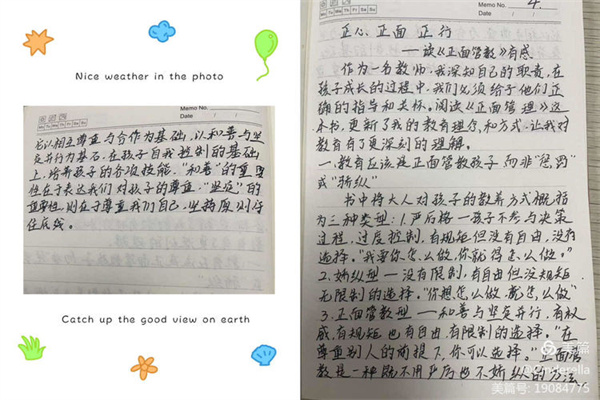 Nice weather in the photo
Memo No.
Mo Tu We Th Fr Sa Su
Date
它以相互尊重与合作为基础,以和善与坚
定并行为基石,在孩子自我控制的基础
上,培养孩子的各项技能。"和善"的重要
性在于表达我们对孩子的尊重,"坚定"的
重要性,则在于尊重我们自己,坚持原则守
住底线。
Catch up the good view on earth
Memo No. 4
Mo Tu We Th Fr Sa Su
Date
正心、正面 正行
——读《正面管教》有感
作为一名教师,我深知自己的职责,在
孩子成长的过程中,我们必须给于他们正
确的指导和关怀。阅读《正面管理》这
本书,更新了我的教育理念和方式,让我对
教育有了更深刻的理解。
一.教育应该是正面管教孩子,而非"惩罚"
或"骄纵"
书中将大人对孩子的教养方式概括
为三种类型:1.严厉格—孩子不参与决策
过程,过度控制,有规矩但没有自由,没有
选择。"我要你怎么做,你就得怎么做。"
2.娇纵型——没有限制,有自由但没规矩
无限制的选择。"你想怎么做,就怎么做"
3.正面管教型——和善与坚定并行,有权
威,有规矩也有自由,有限制的选择。"在
尊重别人的前提下,你可以选择。"正面管
教是一种既不用严厉也不娇纵的方法,
美篇
@Cinderella
美篇号: 19084775